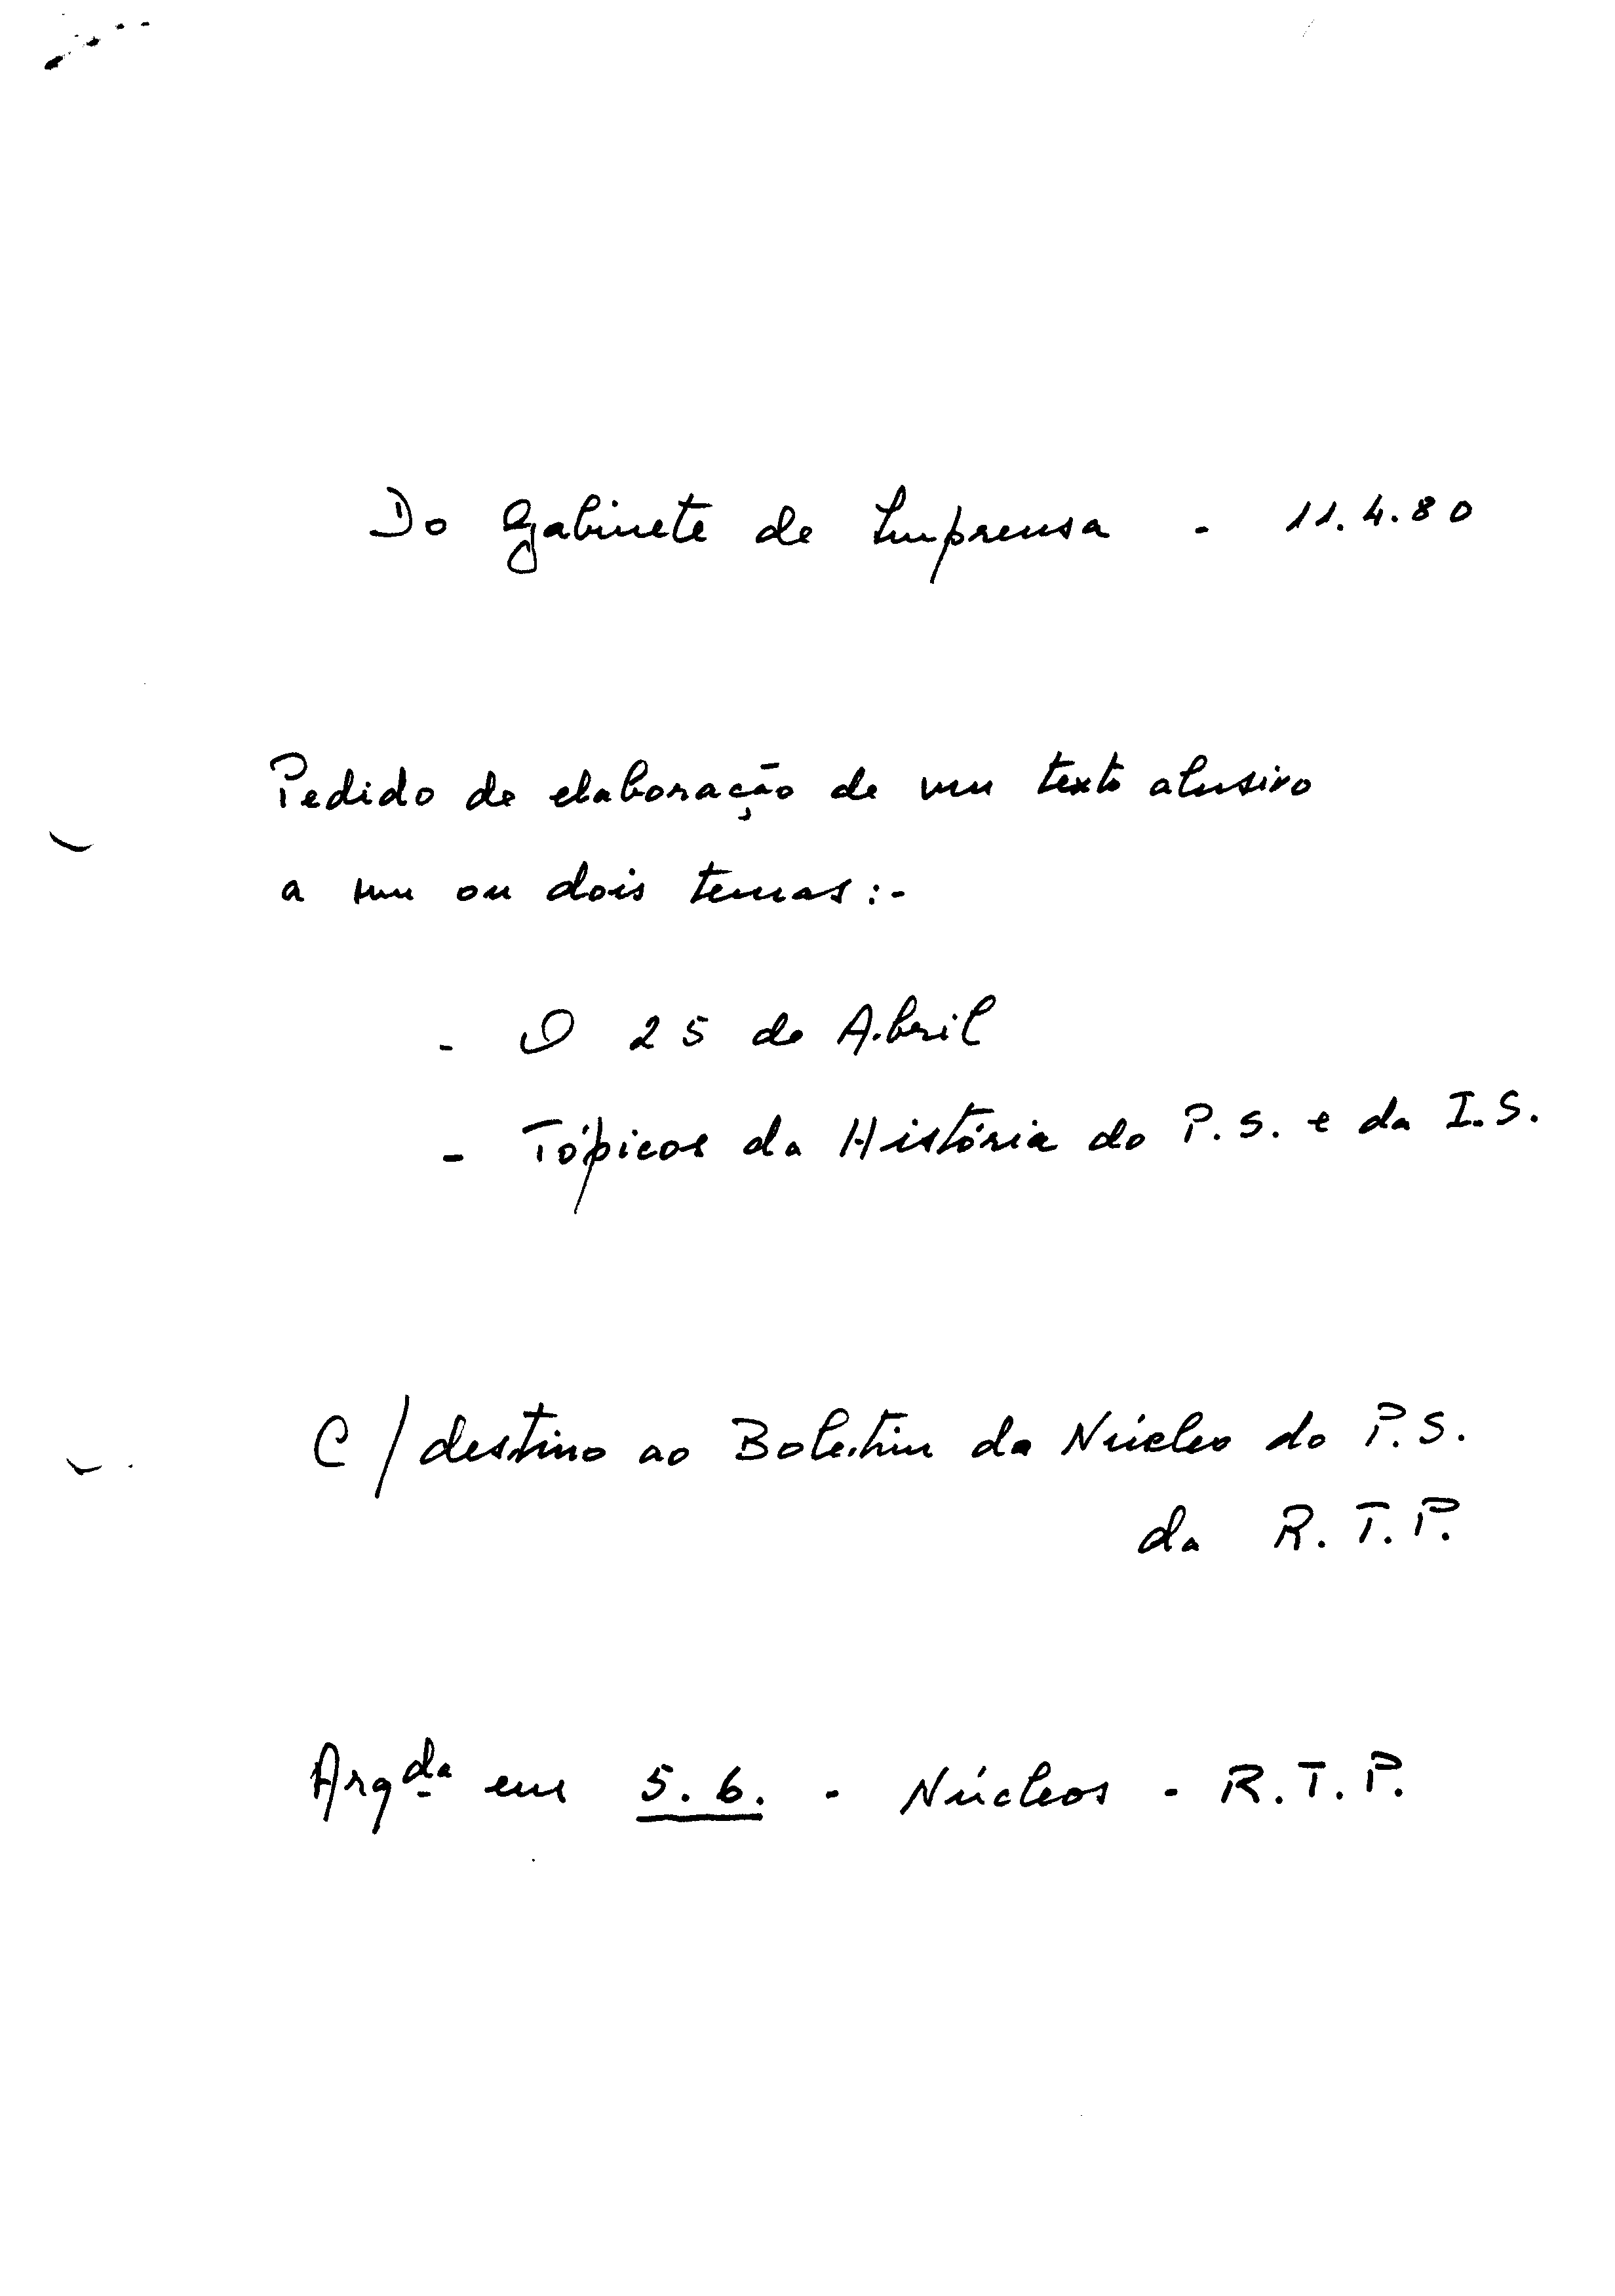 Do Gabinete de Imprensa - 11.4.80
Pedido de elaboração de um texto alusivo
a um ou dois temas:-
- O 25 de Abril
- Tópicos da História do P.S. e da I.S.
C/destino ao Boletim da Núcleo do P.S.
da R.T.P.
Arqda em 5.6. - Núcleos - R.T.P.